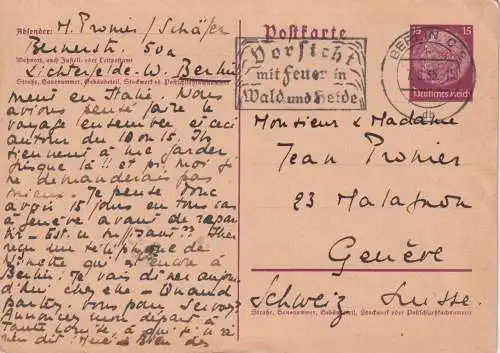 Absender: M. Pronier / Schäfer
Bernerstr. 50a
Wohnort, auch Zustell- oder Leitpostamt
Lichterfelde-W. Berlin
Straße, Hausnummer, Gebäudeteil, Stockwerk od. Postschließfachnummer
Postkarte
Vorsicht
mit Feuer in
Wald und Heide
BERLIN C
15
15
Deutsches Reich
Monsieur & Madame
Jean Pronier
23 Malagnou
Genève
Schweiz Suisse.
Straße, Hausnummer, Gebäudeteil, Stockwerk oder Postschließfachnummer
ment en Italie. Nous
avions pensé faire le
voyage ensemble et ceci
autour du 10 ou 15. Ils
tiennent à me garder
jusque là et pr moi je
ne demanderais pas
mieux. Je pense donc
avoir 15 jours en tous cas
à Genève avant de repar-
tir - Est-ce
reçu un téléphone de
Ninette qui est encore à
Berlin: Je vais dîner aujour-
d'hui chez elle - Quand
partez-vous pour
Annoncez mon départ à
Tante Louise à qui je n'ai
rien dit: